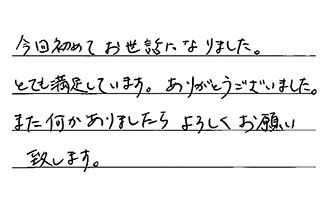 今回初めてお世話になりました。
とても満足しています。ありがとうございました。
また何かありましたらよろしくお願い
致します。